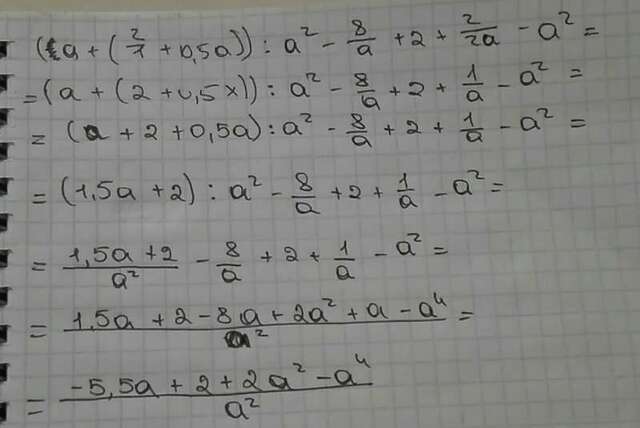 (a + (2/1 + 0,5a)) : a² - 8/a + 2 + 2/2a - a² =
= (a + (2 + 0,5x)) : a² - 8/a + 2 + 1/a - a² =
= (a + 2 + 0,5a) : a² - 8/a + 2 + 1/a - a² =
= (1,5a + 2) : a² - 8/a + 2 + 1/a - a² =
= (1,5a + 2)/a² - 8/a + 2 + 1/a - a² =
= (1,5a + 2 - 8a + 2a² + a - a⁴)/a² =
= (-5,5a + 2 + 2a² - a⁴)/a²